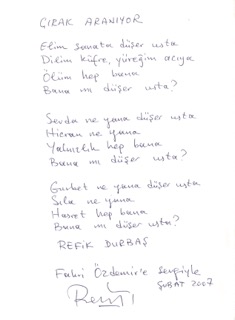 ÇIRAK ARANIYOR
Elim sanata düşer usta
Dilim küfre, yüreğim acıya
Ölüm hep bana
Bana mı düşer usta?
Sevda ne yana düşer usta
Hicran ne yana
Yalnızlık hep bana
Bana mı düşer usta?
Gurbet ne yana düşer usta
Sıla ne yana
Hasret hep bana
Bana mı düşer usta?
REFİK DURBAŞ
Fahri Özdemir'e sevgiyle
ŞUBAT 2007